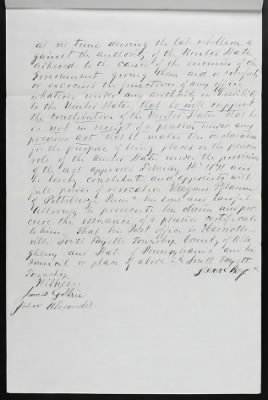 at no time during the late rebellion a
gainst the authority of the United States
adhered to the cause of the enemies of the
Government, giving them aid or comfort,
or exercised the functions of any office
whatever under any authority in hostility
to the United States; that he will support
the constitution of the United States that he
is not in receipt of a pension under any
previous act that he makes this declaration
for the purpose of being placed on the pension
roll of the United States under the provisions
of the act approved February 14th 1871 and
he hereby constitutes and appoints with
full power of revocation
of Pittsburgh Penna his true and lawful
attorney to prosecute his claim and pro
cure the issuance of a pension certificate
to him. That his Post office is
ville South Fayette Township County of Alle
gheny and State of Pennsylvania and his
domicil or place of abode is South Fayette
Township
Witness
James
John Alexander